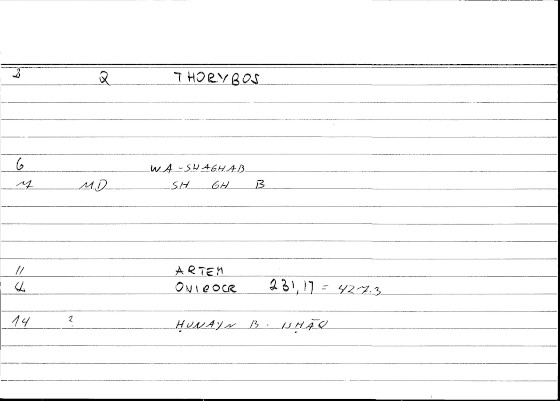 2 Q THORYBOS
6 WA-SHAGHAB
M MD SH GH B
11 ARTEM
4 ONIROCR 231,17 = 427.3
14 ? ḤUNAYN B. ISḤĀQ